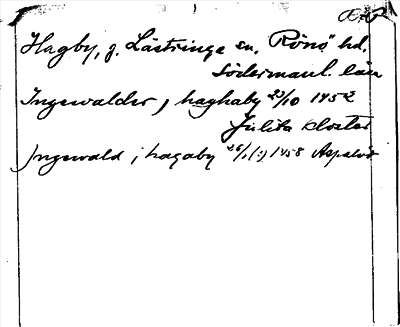 Hagby, g. Lästringe sn, Rönö hd,
Södermanl. län
Ingewalder j haghaby 23/10 1452
Julita kloster
Jngewald i hagaby 26/1 (?) 1458 Aspa